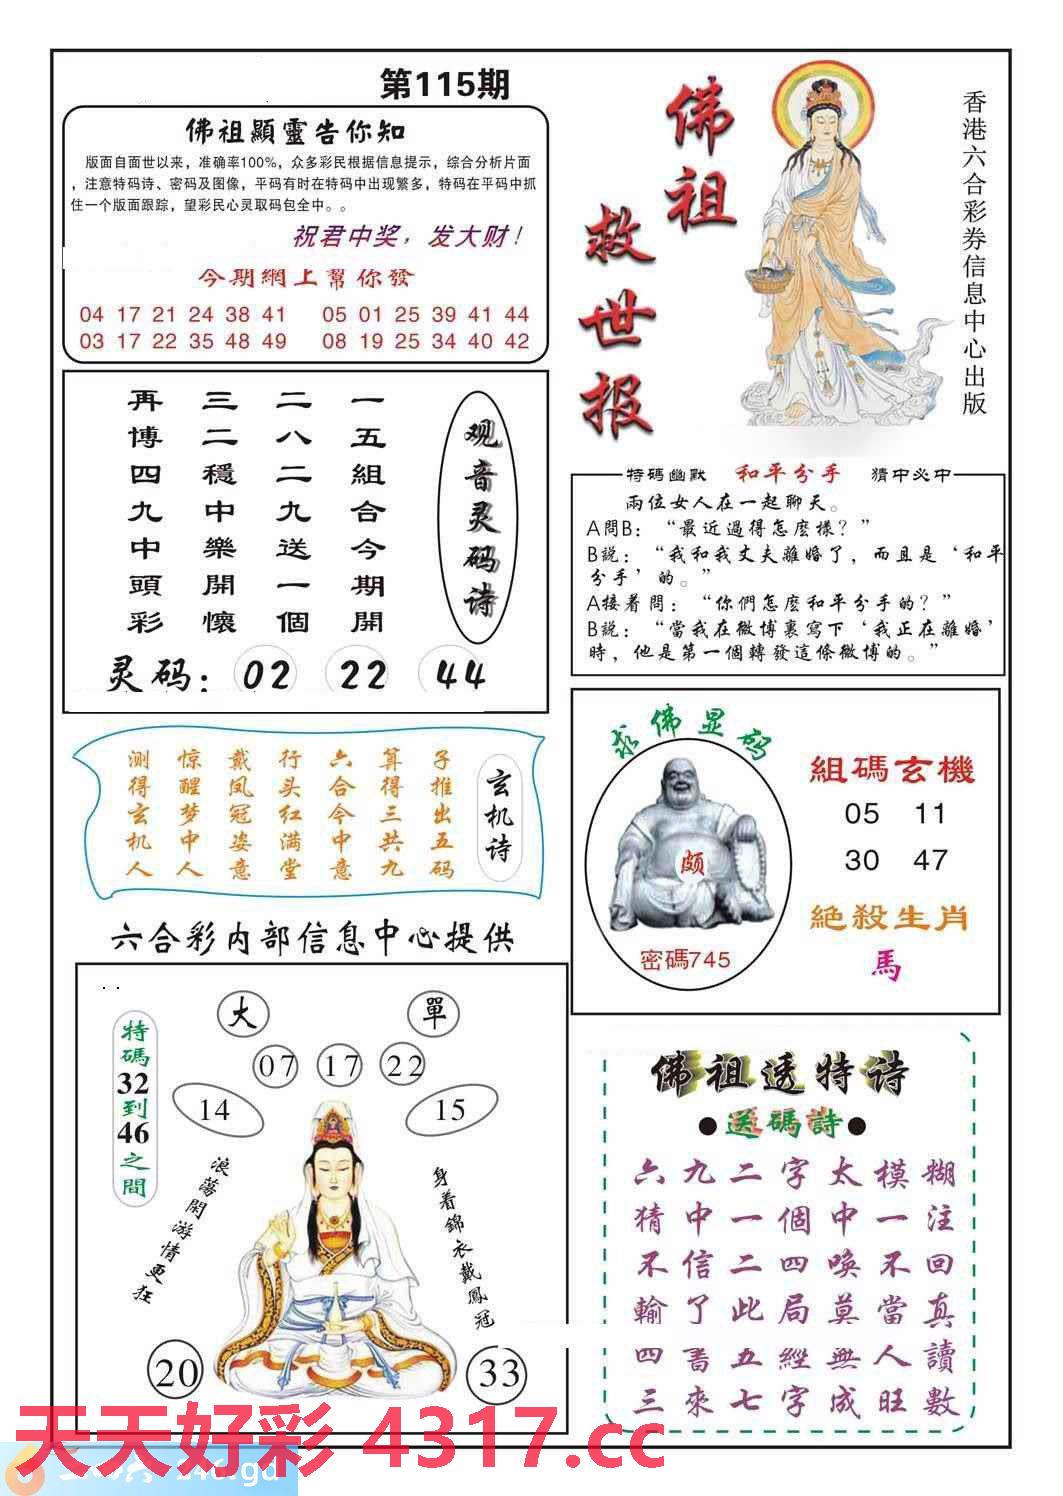 第115期
佛祖顯靈告你知
版面自面世以来，准确率100%，众多彩民根据信息提示，综合分析片面
，注意特码诗、密码及图像，平码有时在特码中出现繁多，特码在平码中抓
住一个版面跟踪，望彩民心灵取码包全中。。
祝君中奖，发大财！
今期網上幫你發
04 17 21 24 38 41 05 01 25 39 41 44
03 17 22 35 48 49 08 19 25 34 40 42
佛祖
救世报
香港六合彩券信息中心出版
观音灵码诗
一五組合今期開
二八二九送一個
三二穩中樂開懷
再博四九中頭彩
灵码：02 22 44
特碼幽默 和平分手 猜中必中
兩位女人在一起聊天。
A問B：“最近過得怎麽樣？”
B説：“我和我丈夫離婚了，而且是‘和平
分手’的。”
A接着問：“你們怎麽和平分手的？”
B説：“當我在微博裏寫下‘我正在離婚’
時，他是第一個轉發這條微博的。”
玄机诗
子推出五码
算得三共九
六合今中意
行头红满堂
戴凤冠姿意
惊醒梦中人
测得玄机人
求佛显码
颇
密碼745
組碼玄機
05 11
30 47
絕殺生肖
馬
六合彩内部信息中心提供
大 單
07 17 22
14 15
特碼32到46之間
浪蕩閑游情更狂
身着錦衣戴鳳冠
20 33
佛祖透特诗
●送碼詩●
六九二字太模糊
猜中一個中一注
不信二四喚不回
輸了此局莫當真
四書五經無人讀
三來七字成旺數
天天好彩 4317.cc
246.gd